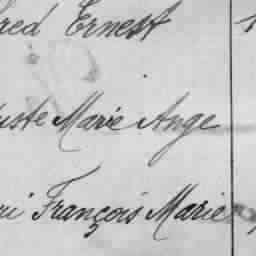 red Ernest
uste Marie Ange
ri François Marie